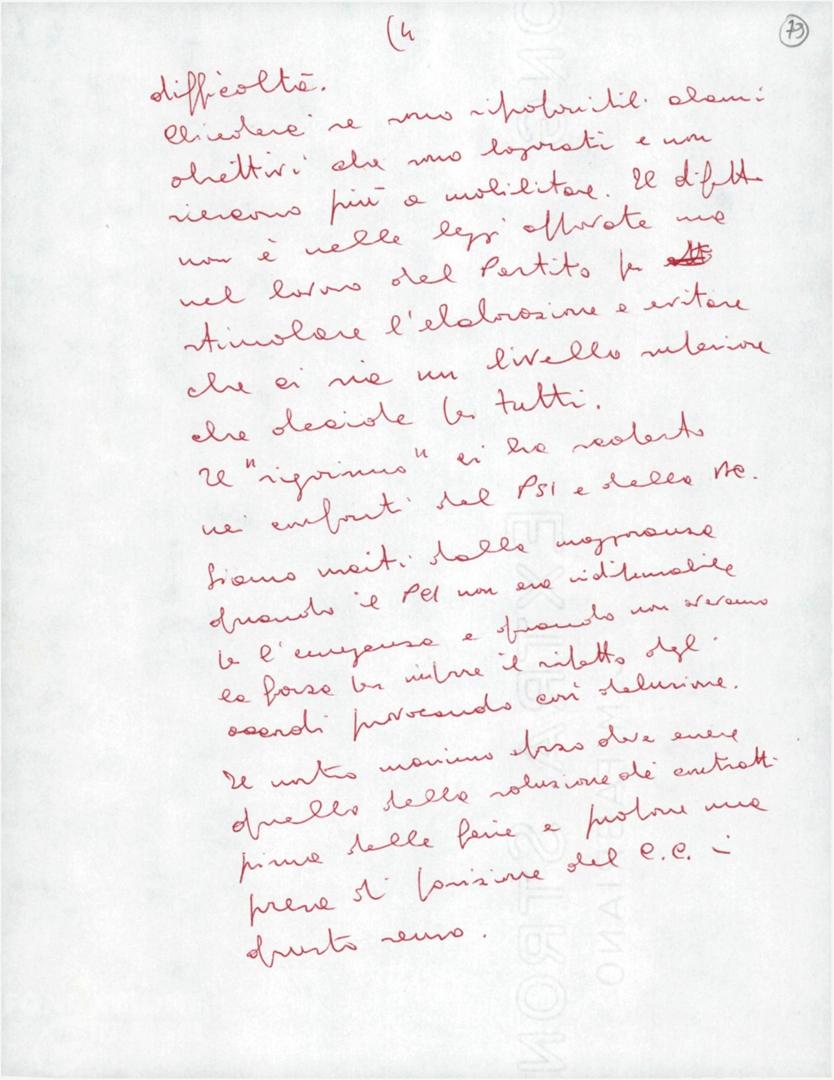 (4
79
difficoltà.
Chiederci se sono riproponibili alcuni
obiettivi che sono logorati e non
riescono più a mobilitare. Il difetto
non è nelle leggi approvate ma
nel lavoro del Partito per
stimolare l'elaborazione e evitare
che ci sia un livello superiore
che decide per tutti.
Il "rigorismo" ci ha
nei confronti del PSI e della DC.
Siamo usciti dalla maggioranza
quando il PCI non era indispensabile
per l'emergenza e quando non avevamo
la forza per imporre il rispetto degli
accordi provocando così delusione.
Il nostro massimo sforzo deve essere
quello della soluzione dei contratti
prima delle ferie e proporre una
presa di posizione del C.C. in
questo senso.
EXTRA STRONG
FABRIANO